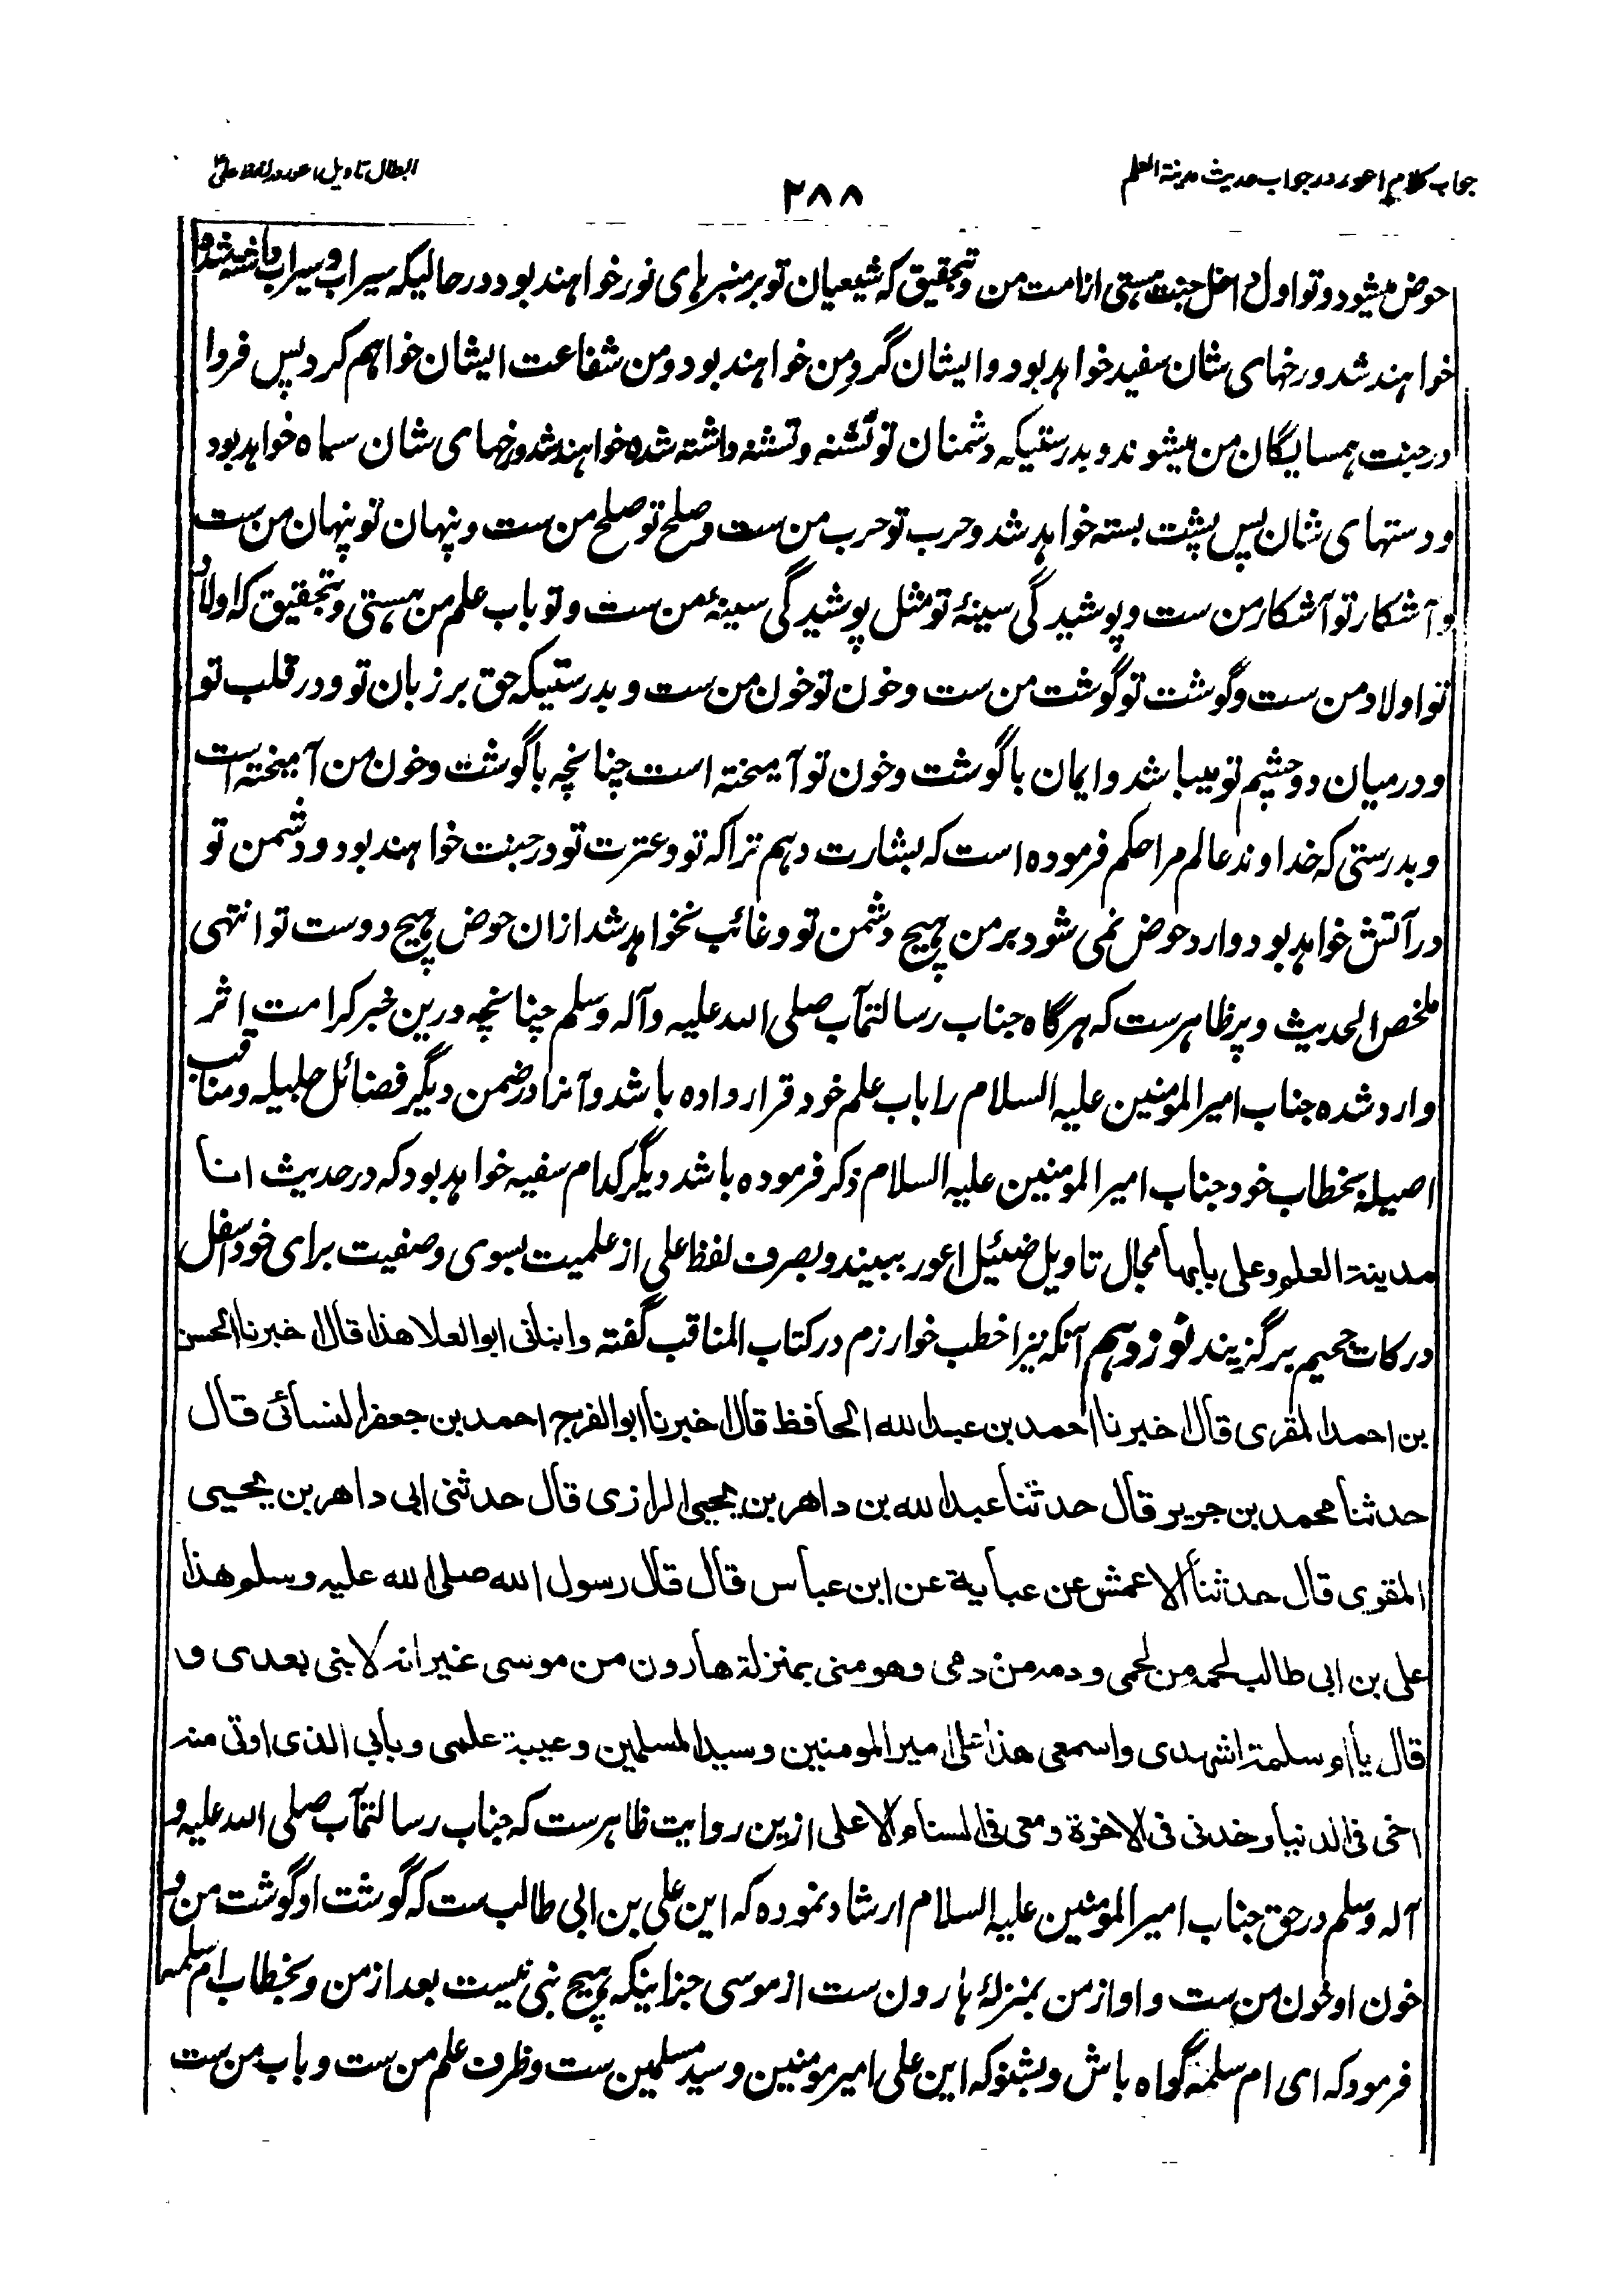 جواب کلام اعور در جواب حدیث مدینة العلم
۲۸۸
ابطال تاویل اعور لفظ علی
حوض میشود و تو اول داخل جنت هستی از امت من و بتحقیق که شیعیان تو بر منبرهای نور خواهند بود در حالیکه سیراب و سیراب داشته شده
خواهند شد و رخهای شان سفید خواهد بود و ایشان گرد من خواهند بود و من شفاعت ایشان خواهم کرد پس فردا
در جنت همسایگان من میشوند و بدرستیکه دشمنان تو تشنه و تشنه داشته شده خواهند شد و رخهای شان سیاه خواهد بود
و دستهای شان پس پشت بسته خواهد شد و حرب تو حرب من ست و صلح تو صلح من ست و پنهان تو پنهان من ست
و آشکار تو آشکار من ست و پوشیدگی سینهٔ تو مثل پوشیدگی سینهٔ من ست و تو باب علم من هستی و بتحقیق که اولاد
تو اولاد من ست و گوشت تو گوشت من ست و خون تو خون من ست و بدرستیکه حق بر زبان تو و در قلب تو
و در میان دو چشم تو میباشد و ایمان با گوشت و خون تو آمیخته است چنانچه با گوشت و خون من آمیخته است
و بدرستی که خداوند عالم مرا حکم فرموده است که بشارت دهم ترا که تو و عترت تو در جنت خواهند بود و دشمن تو
در آتش خواهد بود وارد حوض نمی شود بر من هیچ دشمن تو و غائب نخواهد شد ازان حوض هیچ دوست تو انتهی
ملخص الحدیث و پر ظاهرست که هرگاه جناب رسالتمآب صلی الله علیه وآله وسلم چنانچه درین خبر کرامت اثر
وارد شده جناب امیر المومنین علیه السلام را باب علم خود قرار داده باشد و آنرا در ضمن دیگر فضائل جلیله و مناقب
اصیله بخطاب خود جناب امیر المومنین علیه السلام ذکر فرموده باشد دیگر کدام سفیه خواهد بود که در حدیث انا
مدینة العلم وعلی بابها مجال تاویل ضئیل اعور ببیند و بصرف لفظ علی از علمیت بسوی وصفیت برای خود اسفل
درکات جحیم برگزیند نوزدهم آنکه نیز اخطب خوارزم در کتاب المناقب گفته وانبانی ابو العلا هذا قال اخبرنا الحسن
بن احمد المقری قال اخبرنا احمد بن عبد الله الحافظ قال اخبرنا ابو الفرج احمد بن جعفر النسائی قال
حدثنا محمد بن جریر قال حدثنا عبد الله بن داهر بن یحیی الرازی قال حدثنی ابی داهر بن یحیی
المقری قال حدثنا الاعمش عن عبایة عن ابن عباس قال قال رسول الله صلی الله علیه وسلم هذا
علی بن ابی طالب لحمه من لحمی ودمه من دمی وهو منی بمنزلة هارون من موسی غیر انه لا نبی بعدی و
قال یا ام سلمة اشهدی واسمعی هذا علی امیر المومنین وسید المسلمین وعیبة علمی وبابی الذی اوتی منه
اخی فی الدنیا وخدنی فی الاخرة ومعی فی السنام الاعلی ازین روایت ظاهرست که جناب رسالتمآب صلی الله علیه و
آله وسلم در حق جناب امیر المومنین علیه السلام ارشاد نموده که این علی بن ابی طالب ست که گوشت او گوشت من و
خون او خون من ست و او از من بمنزلهٔ هارون ست از موسی جز اینکه هیچ نبی نیست بعد از من و بخطاب ام سلمه
فرمود که ای ام سلمه گواه باش و بشنو که این علی امیر مومنین و سید مسلمین ست و ظرف علم من ست و باب من ست